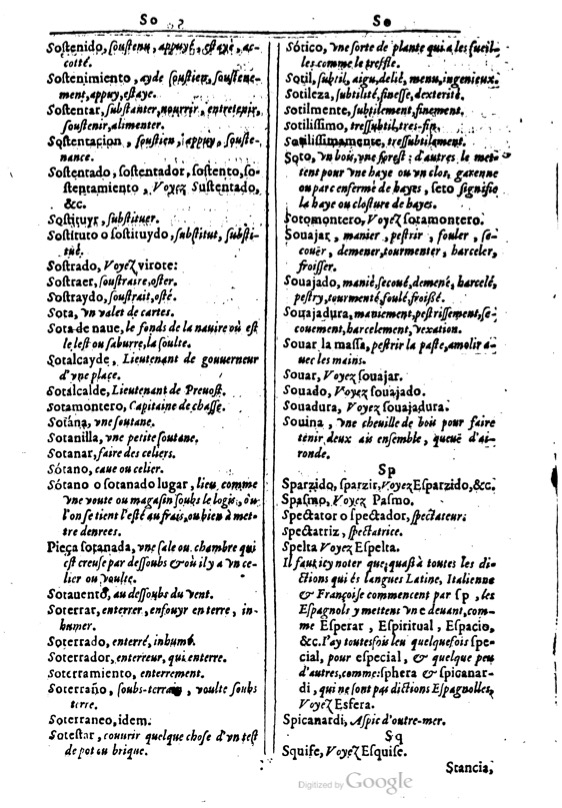 So
Soſtenido, ſouſtenu, appuyé, eſtayé, ac-
cotté.
Soſtenimiento, ayde ſouſtien, ſouſtene-
ment, appuy, eſtaye.
Soſtentar, ſubſtanter, nourrir, entretenir,
ſouſtenir, alimenter.
Soſtentacion, ſouſtien, appuy, ſouſte-
nance.
Soſtentado, ſoſtentador, ſoſtento, ſo-
ſtentamiento, Voyez Suſtentado,
&c.
Soſtituyr, ſubſtituer.
Soſtituto o ſoſtituydo, ſubſtitut, ſubſti-
tué.
Soſtrado, Voyez virote:
Soſtraer, ſouſtraire, oſter.
Soſtraydo, ſouſtrait, oſté.
Sota, vn valet de cartes.
Sota de naue, le fonds de la nauire où eſt
le leſt ou ſaburre, la ſoulte.
Sotalcayde, Lieutenant de gouuerneur
d'vne place.
Sotalcalde, Lieutenant de Preuoſt.
Sotamontero, Capitaine de chaſſe.
Sotána, vne ſoutane.
Sotanilla, vne petite ſoutane.
Sotanar, faire des celiers.
Sótano, caue ou celier.
Sótano o ſotanado lugar, lieu comme
vne voute ou magaſin ſoubs le logis, où
l'on ſe tient l'eſté au frais, ou bien à met-
tre denrees.
Pieça ſotanada, vne ſale ou chambre qui
eſt creuſe par deſſoubs & où il y a vn ce-
lier ou voulte.
Sotauento, au deſſoubs du vent.
Soterrar, enterrer, enfouyr en terre, in-
humer.
Soterrado, enterré, inhumé.
Soterrador, enterreur, qui enterre.
Soterramiento, enterrement.
Soterraño, ſoubs-terrain, voulte ſoubs
terre.
Soterraneo, idem.
Soteſtar, couurir quelque choſe d'vn teſt
de pot ou brique.
So
Sótico, vne ſorte de plante qui a les fueil-
les comme le treffle.
Sotil, ſubtil, aigu, delié, menu, ingenieux.
Sotileza, ſubtilité, fineſſe, dexterité.
Sotilmente, ſubtilement, finement.
Sotiliſſimo, treſſubtil, tres-fin.
Sotiliſſimamente, treſſubtilement.
Soto, vn bois, vne foreſt; d'autres le met-
tent pour vne haye ou vn clos, garenne
ou parc enfermé de hayes, ſeto ſignifie
la haye ou cloſture de hayes.
Sotomontero, Voyez ſotamontero.
Souajar, manier, peſtrir, fouler, ſe-
couër, demener, tourmenter, harceler,
froiſſer.
Souajado, manié, ſecoué, demené, harcelé,
peſtry, tourmenté, foulé, froiſſé.
Souajadura, maniement, peſtriſſement, ſe-
couement, harcelement, vexation.
Souar la maſſa, peſtrir la paſte, amolir a-
uec les mains.
Souar, Voyez ſouajar.
Souado, Voyez ſouajado.
Souadura, Voyez ſouajadura.
Souina, vne cheuille de bois pour faire
tenir deux ais enſemble, queuë d'ai-
ronde.
Sp
Sparzido, ſparzir, Voyez Eſparzido, &c.
Spaſmo, Voyez Paſmo.
Spectator o ſpectador, ſpectateur.
Spectatriz, ſpectatrice.
Spelta Voyez Eſpelta.
Il faut icy noter que quaſi à toutes les di-
ctions qui és langues Latine, Italienne
& Françoiſe commencent par ſp, les
Eſpagnols y mettent vn e deuant, com-
me Eſperar, Eſpiritual, Eſpacio,
&c. I'ay toutesfois leu quelquefois ſpe-
cial, pour eſpecial, & quelque peu
d'autres, comme: ſphera & ſpicanar-
di, qui ne ſont pas dictions Eſpagnolles,
Voyez Esfera.
Spicanardi, Aſpic d'outre-mer.
Sq
Squife, Voyez Eſquife.
Stancia,
Digitized by Google